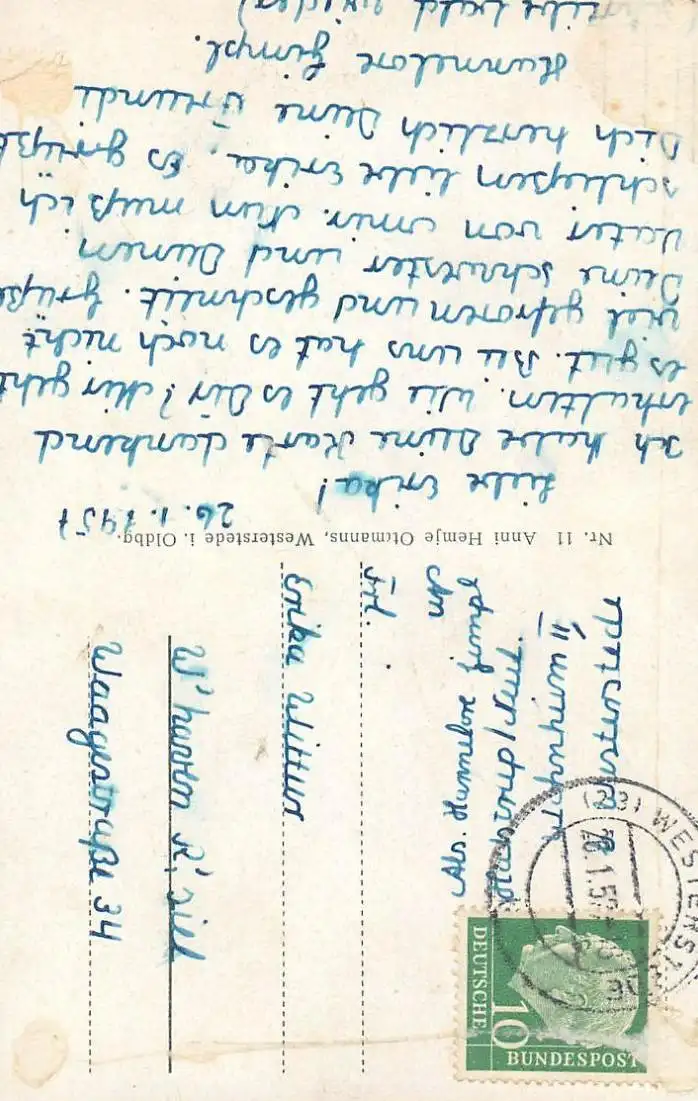 26.1.1957
Liebe Erika!
Ich habe Deine Karte dankend
erhalten. Wie geht es Dir? Mir geht
es gut. Bei uns hat es noch nicht
viel gefroren und geschneit. Grüße
Deine Schwester und Deinen
Vater von mir. Nun muß ich
schließen liebe Erika. Es grüßt
Dich herzlich Deine Freundi
Hannelore Gimpl.
bald wieder)
Nr. 11 Anni Hemje Otcmanns, Westerstede i. Oldbg.
Abs. Hannelore
Gimpl
Westerstede
An
Frl.
Erika Wittur
W'haven R'siel
Waagestraße 34
(23) WESTERST
26.1.57
DEUTSCHE
BUNDESPOST
10